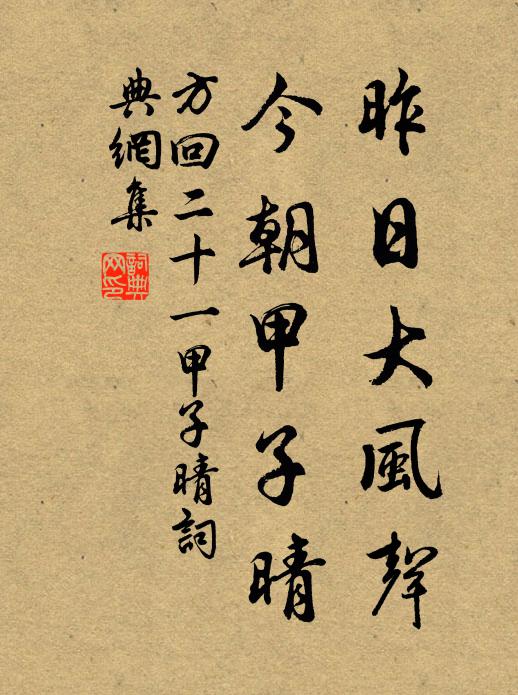 昨日大風聲
今朝甲子晴
方回二十一甲子晴詞
典網集
詞典
网印